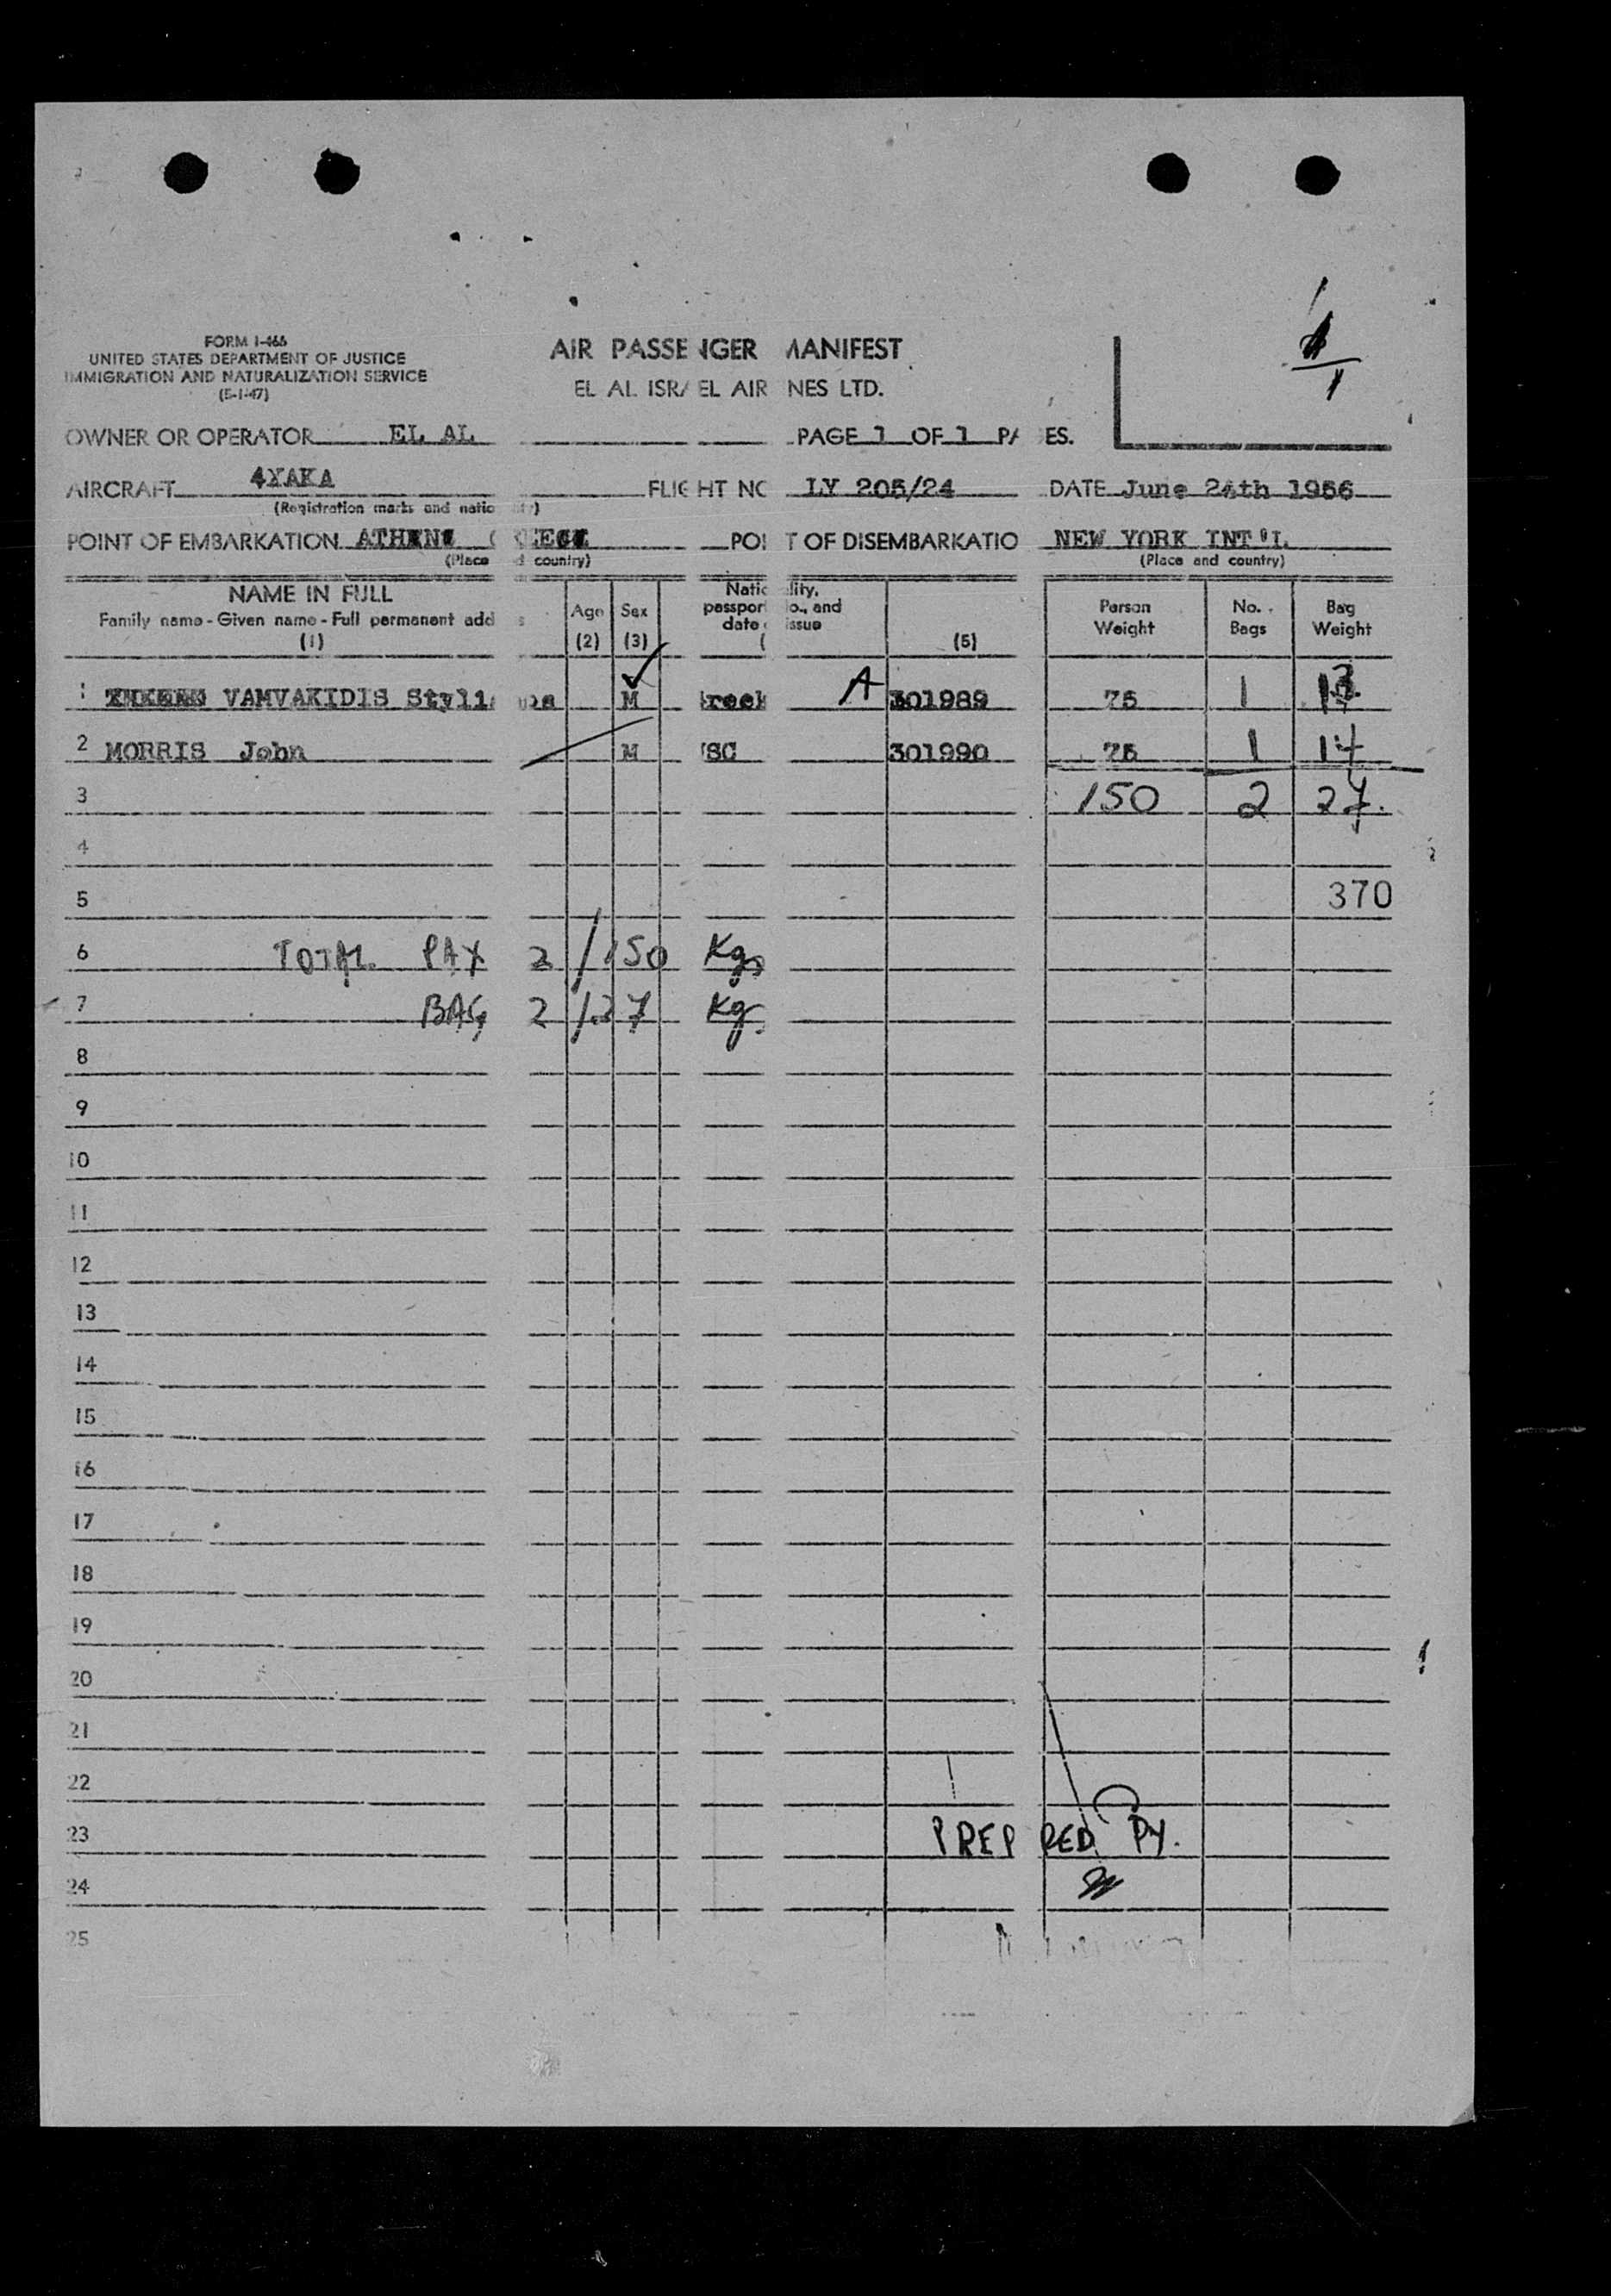 FORM I-466
UNITED STATES DEPARTMENT OF JUSTICE
IMMIGRATION AND NATURALIZATION SERVICE
(5-1-47)
AIR PASSE NGER MANIFEST
EL AL ISRA EL AIR NES LTD.
1
OWNER OR OPERATOR EL AL PAGE 1 OF 1 PA ES.
AIRCRAFT 4XAKA FLIG HT NO LY 205/24 DATE June 24th 1956
(Registration marks and natio ity)
POINT OF EMBARKATION ATHENS POI T OF DISEMBARKATIO NEW YORK INT'L
(Place d country) (Place and country)
NAME IN FULL
Family name - Given name - Full permanent add s
(1)
Age
(2)
Sex
(3)
Natio ality,
passport o., and
date issue
(
(5)
Person
Weight
No.
Bags
Bag
Weight
1 VAMVAKIDIS Styli M reek A 301989 75 1 13
2 MORRIS John M USC 301990 75 1 14
3 150 2 27.
4
5 370
6 TOTAL PAX 2 / 150 Kgs
7 BAG 2 / 27 Kg.
8
9
10
11
12
13
14
15
16
17
18
19
20
21
22
23 PREP RED PY.
24
25